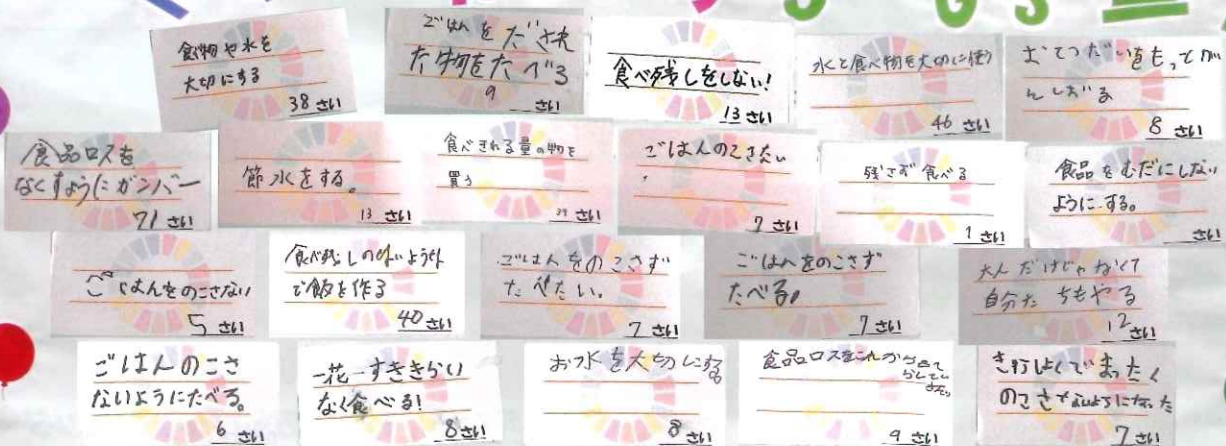 食物や水を
大切にする
38 さい
ごはんをだされ
た物をたべる
9 さい
食べ残しをしない!
13 さい
水と食べ物を大切に使う
46 さい
おてつだいをもっとがん
8 さい
食品ロスを
なくすようにガンバー
71 さい
節水をする。
13 さい
食べきれる量の物を
買う
39 さい
ごはんのこさない
7 さい
残さず食べる
1 さい
食品をむだにしない
ようにする。
さい
ごはんをのこさない
5 さい
食べ残しの
で飯を作る
40 さい
ごはんをのこさず
たべたい。
7 さい
ごはんをのこさず
たべる。
7 さい
大人だけじゃなくて
自分たちもやる
12 さい
ごはんのこさ
ないようにたべる。
6 さい
すききらい
なく食べる!
8 さい
お水を大切にする。
8 さい
食品ロスをこれから
9 さい
まったく
のこさ
7 さい